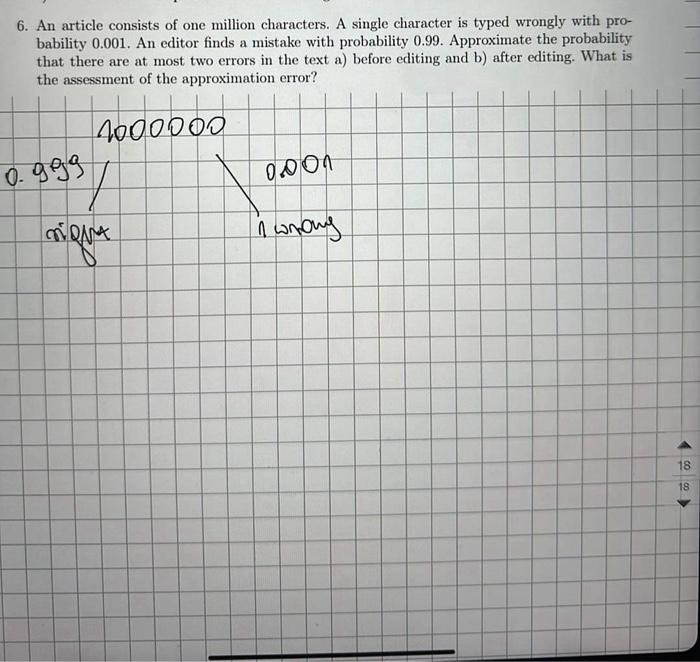 6. An article consists of one million characters. A single character is typed wrongly with pro-
bability 0.001. An editor finds a mistake with probability 0.99. Approximate the probability
that there are at most two errors in the text a) before editing and b) after editing. What is
the assessment of the approximation error?
1000000
0.999
0.001
right
1 wrong
18
18